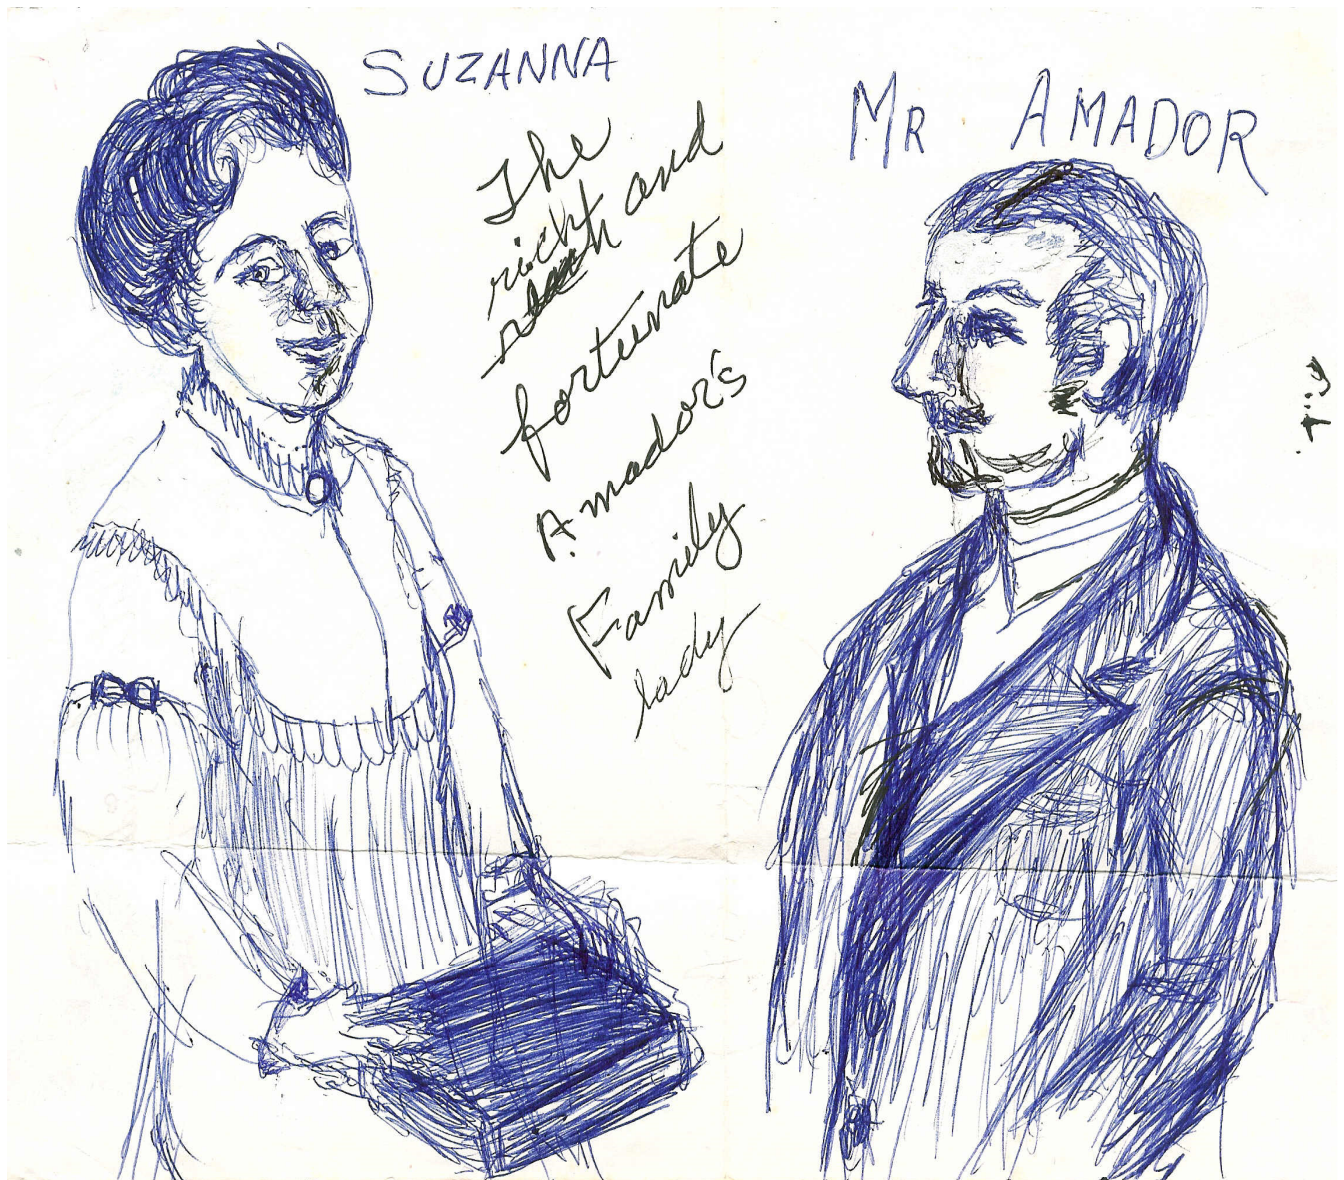 SUZANNA
MR AMADOR
The
rich and
fortunate
Amador's
Family
lady